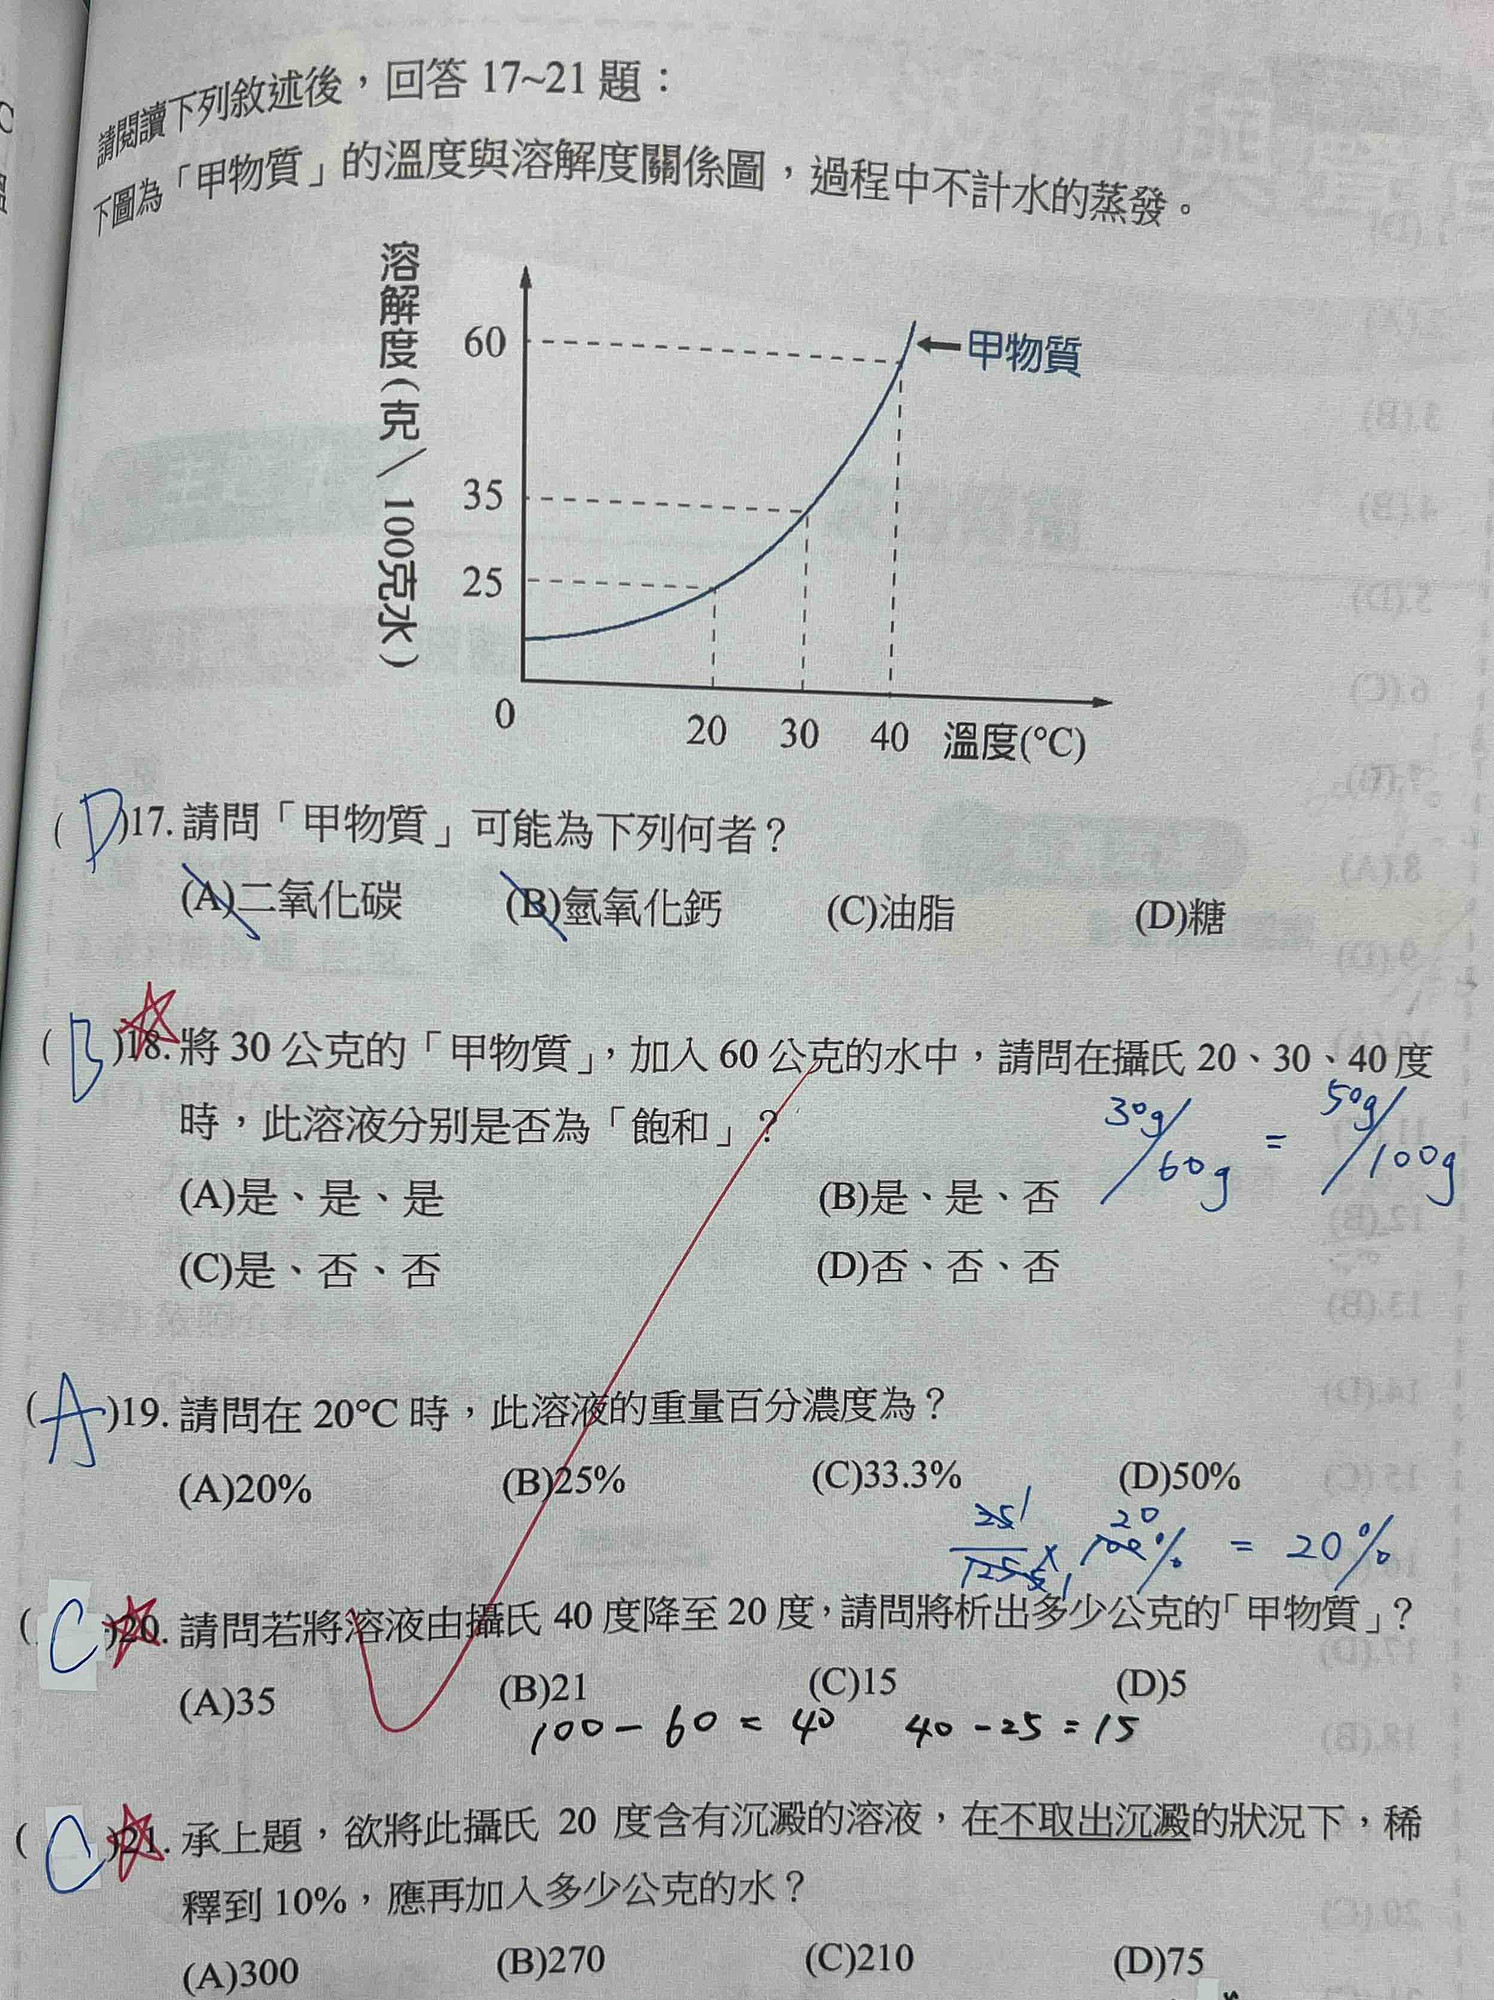 請閱讀下列敘述後，回答 17~21 題：
下圖為「甲物質」的溫度與溶解度關係圖，過程中不計水的蒸發。
溶解度(克/100克水)
60
甲物質
35
25
0
20 30 40 溫度(°C)
( D )17. 請問「甲物質」可能為下列何者？
(A)二氧化碳 (B)氫氧化鈣 (C)油脂 (D)糖
( B )18. 將 30 公克的「甲物質」，加入 60 公克的水中，請問在攝氏 20、30、40 度
時，此溶液分別是否為「飽和」？
30g/60g = 50g/100g
(A)是、是、是 (B)是、是、否
(C)是、否、否 (D)否、否、否
( A )19. 請問在 20°C 時，此溶液的重量百分濃度為？
(A)20% (B)25% (C)33.3% (D)50%
25/125 × 100% = 20%
( C )20. 請問若將溶液由攝氏 40 度降至 20 度，請問將析出多少公克的「甲物質」？
(A)35 (B)21 (C)15 (D)5
100 - 60 = 40 40 - 25 = 15
( C )21. 承上題，欲將此攝氏 20 度含有沉澱的溶液，在不取出沉澱的狀況下，稀
釋到 10%，應再加入多少公克的水？
(A)300 (B)270 (C)210 (D)75